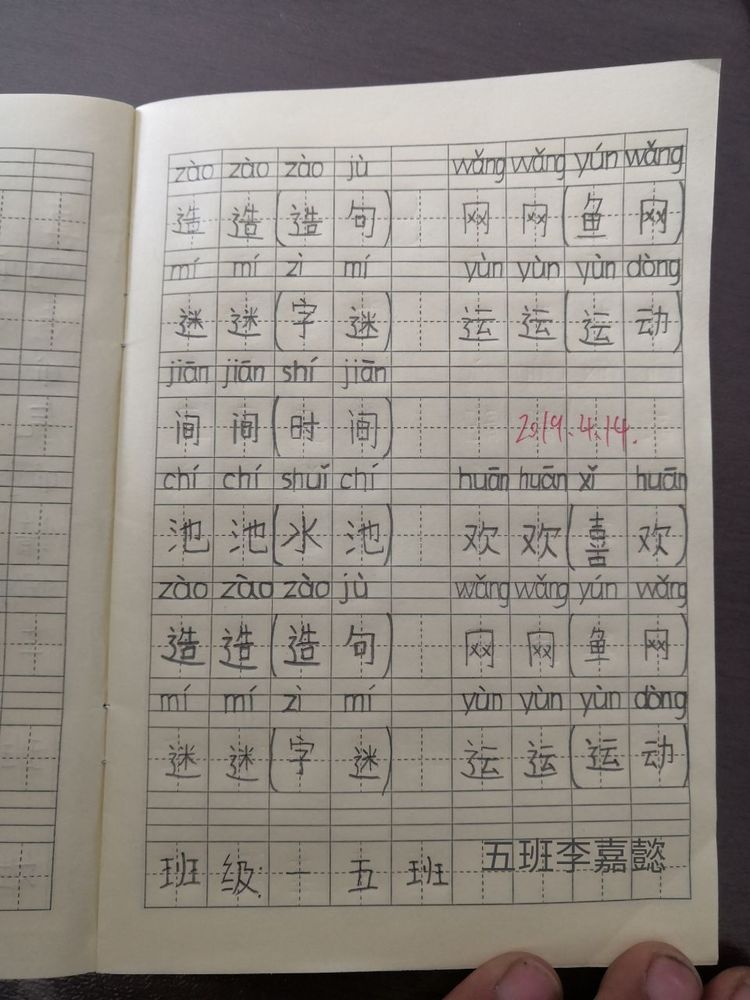 zào zào zào jù wǎng wǎng yún wǎng
造 造 (造 句) 网 网 (鱼 网)
mí mí zì mí yùn yùn yùn dòng
谜 谜 (字 谜) 运 运 (运 动)
jiān jiān shí jiān
间 间 (时 间) 2019.4.14.
chí chí shuǐ chí huān huān xǐ huān
池 池 (水 池) 欢 欢 (喜 欢)
zào zào zào jù wǎng wǎng yún wǎng
造 造 (造 句) 网 网 (鱼 网)
mí mí zì mí yùn yùn yùn dòng
迷 迷 (字 迷) 运 运 (运 动)
班 级 一 五 班 五班李嘉懿